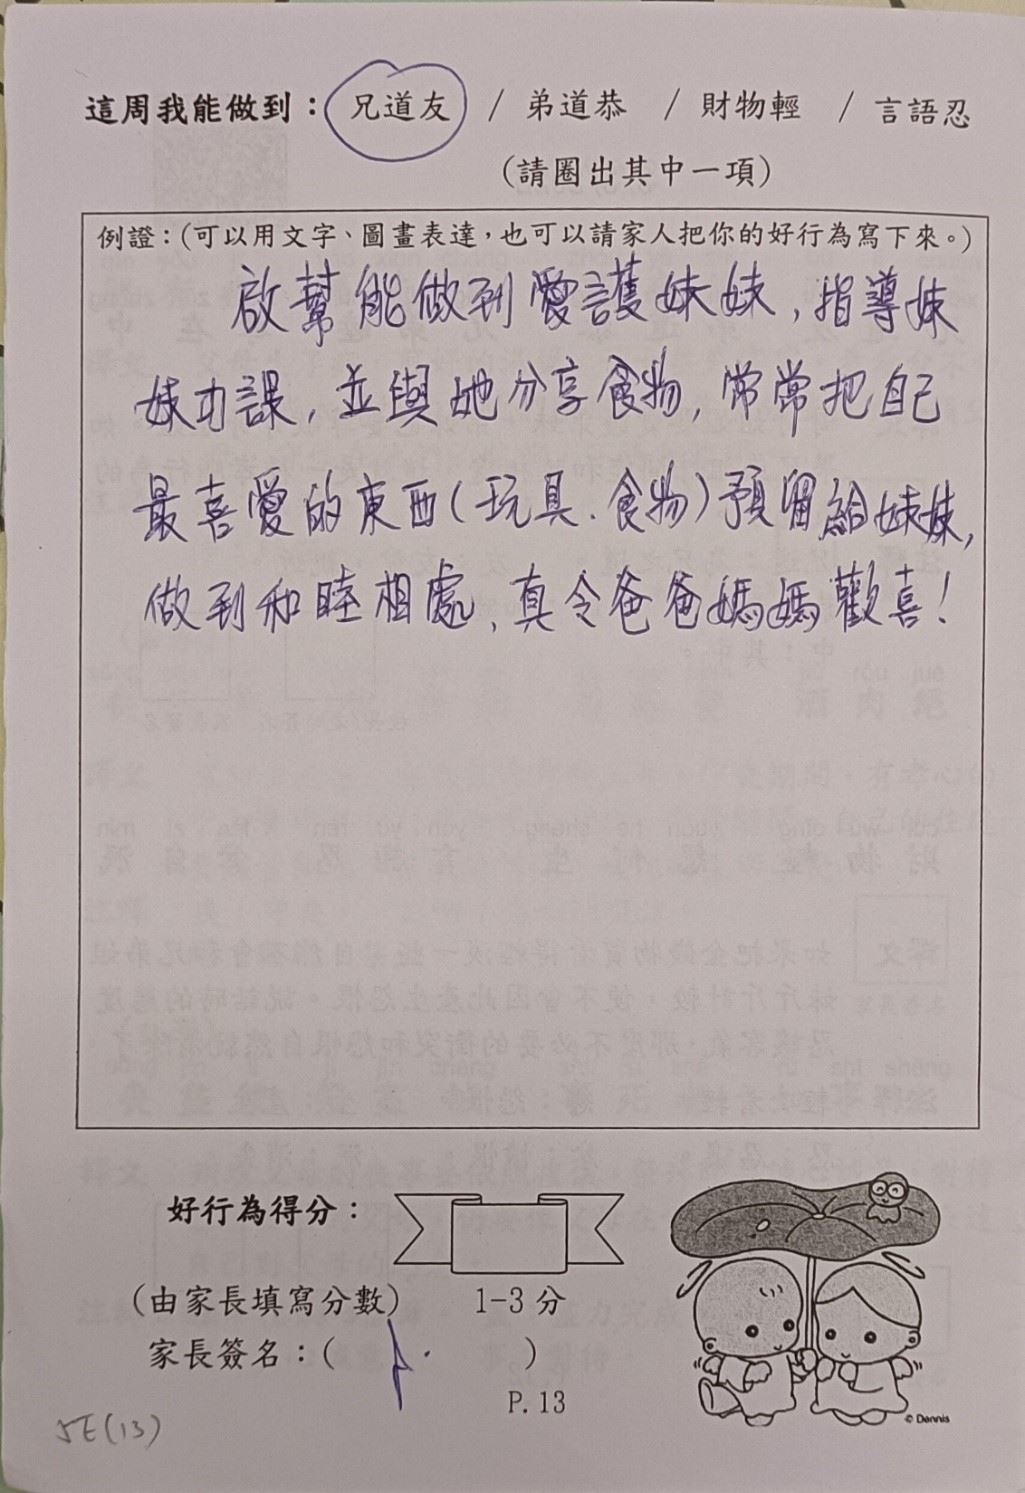 這周我能做到：兄道友 / 弟道恭 / 財物輕 / 言語忍
(請圈出其中一項)
例證：(可以用文字、圖畫表達，也可以請家人把你的好行為寫下來。)
啟幫能做到愛護妹妹，指導妹
妹功課，並與她分享食物，常常把自己
最喜愛的東西(玩具、食物)預留給妹妹，
做到和睦相處，真令爸爸媽媽歡喜！
好行為得分：
(由家長填寫分數) 1-3 分
家長簽名：( )
P.13
5E(13)
© Dennis